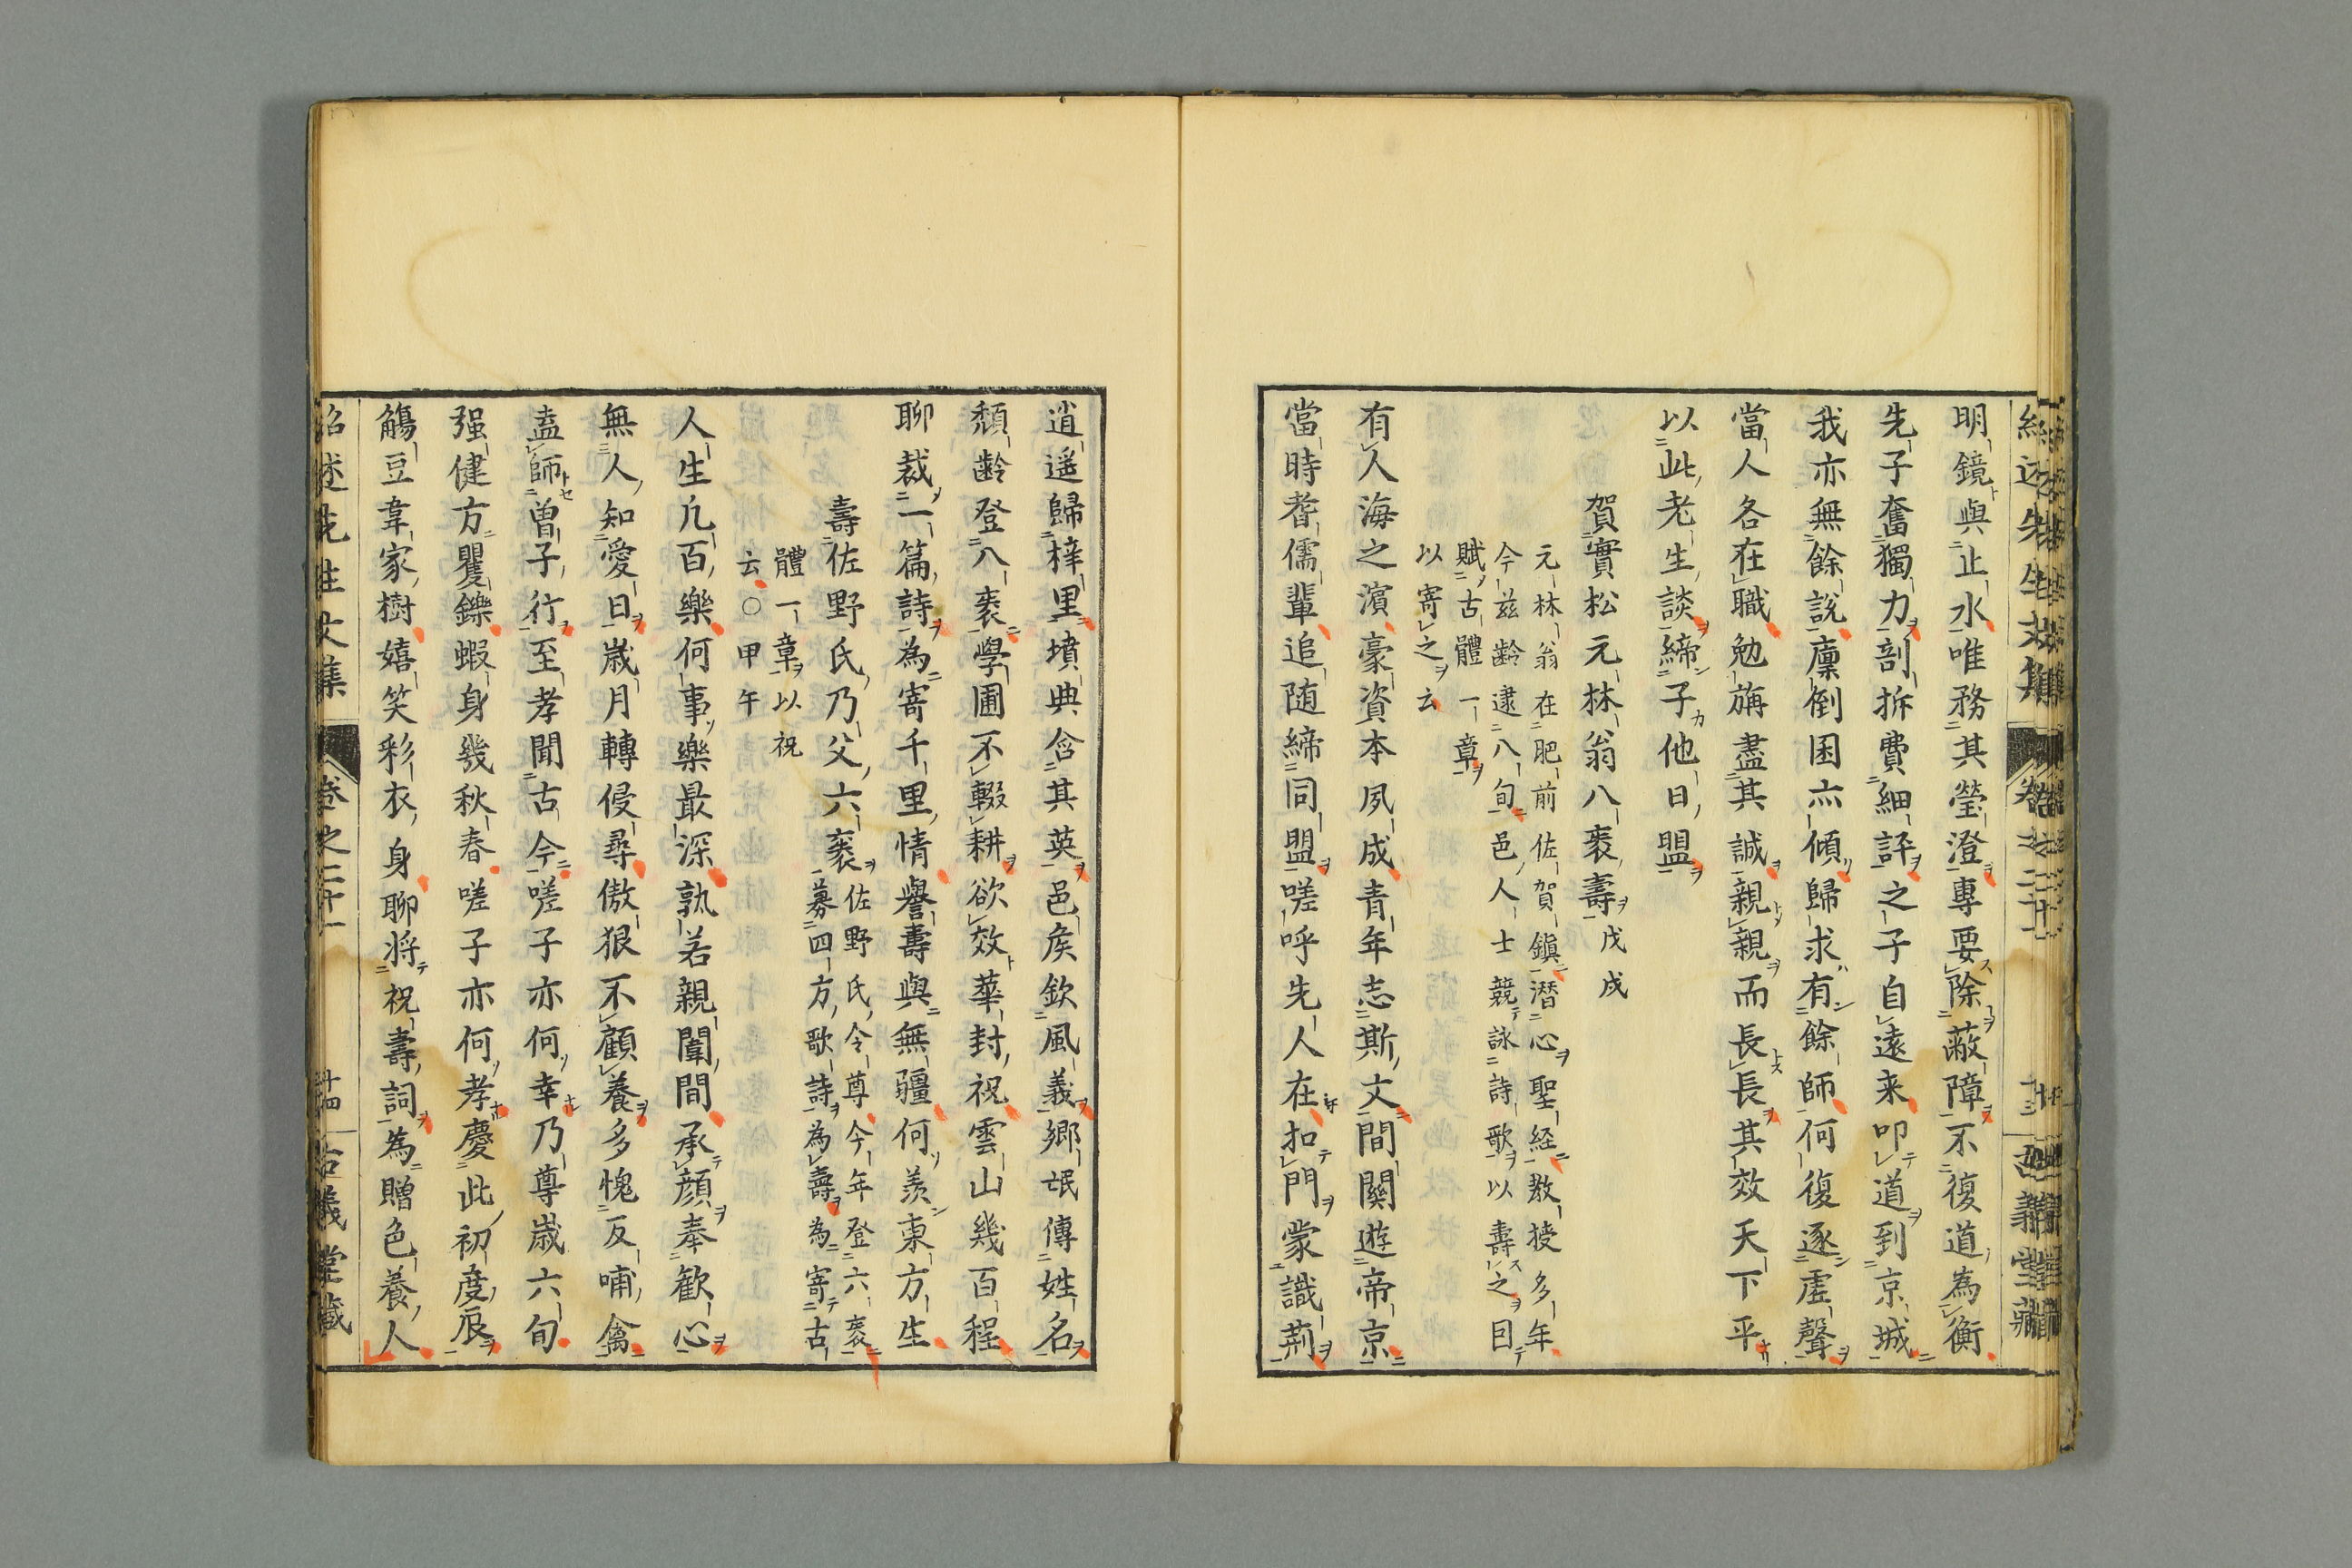 明鏡與止水唯務其瑩澄專要除蔽障不復道為衡
先子奮獨力剖拆費細評之子自遠来叩道到京城
我亦無餘說廩倒囷亦傾歸求有餘師何復逐虛聲
當人各在職勉旃盡其誠親親而長長其效天下平
以此老生談締子他日盟
賀實松元林翁八袠壽戊戌
元林翁在肥前佐賀鎮潛心聖経教授多年
今兹齡逮八旬邑人士競詠詩歌以壽之囙
賦古體一章
以寄之云
有人海之濵豪資本夙成青年志斯文間關遊帝京
當時耆儒輩追随締同盟嗟呼先人在扣門蒙識荊
逍遥歸梓里墳典含其英邑矦欽風義鄉氓傳姓名
頹齡登八袠學圃不輟耕欲效華封祝雲山幾百程
聊裁一篇詩為寄千里情譽壽與無疆何羨東方生
壽佐野氏乃父六袠
佐野氏令尊今年登六袠
募四方歌詩為壽為寄古
體一章以祝
云○甲午
人生凢百樂何事樂最深孰若親闈間承顔奉歡心
無人知愛日歳月轉侵尋傲狠不顧養多愧反哺禽
盍師曽子行至孝聞古今嗟子亦何幸乃尊歳六旬
强健方矍鑠蝦身幾秋春嗟子亦何孝慶此初度辰
觴豆韋家樹嬉笑彩衣身聊将祝壽詞為贈色養人
紹述先生文集 卷之二十一 十四 古義堂藏